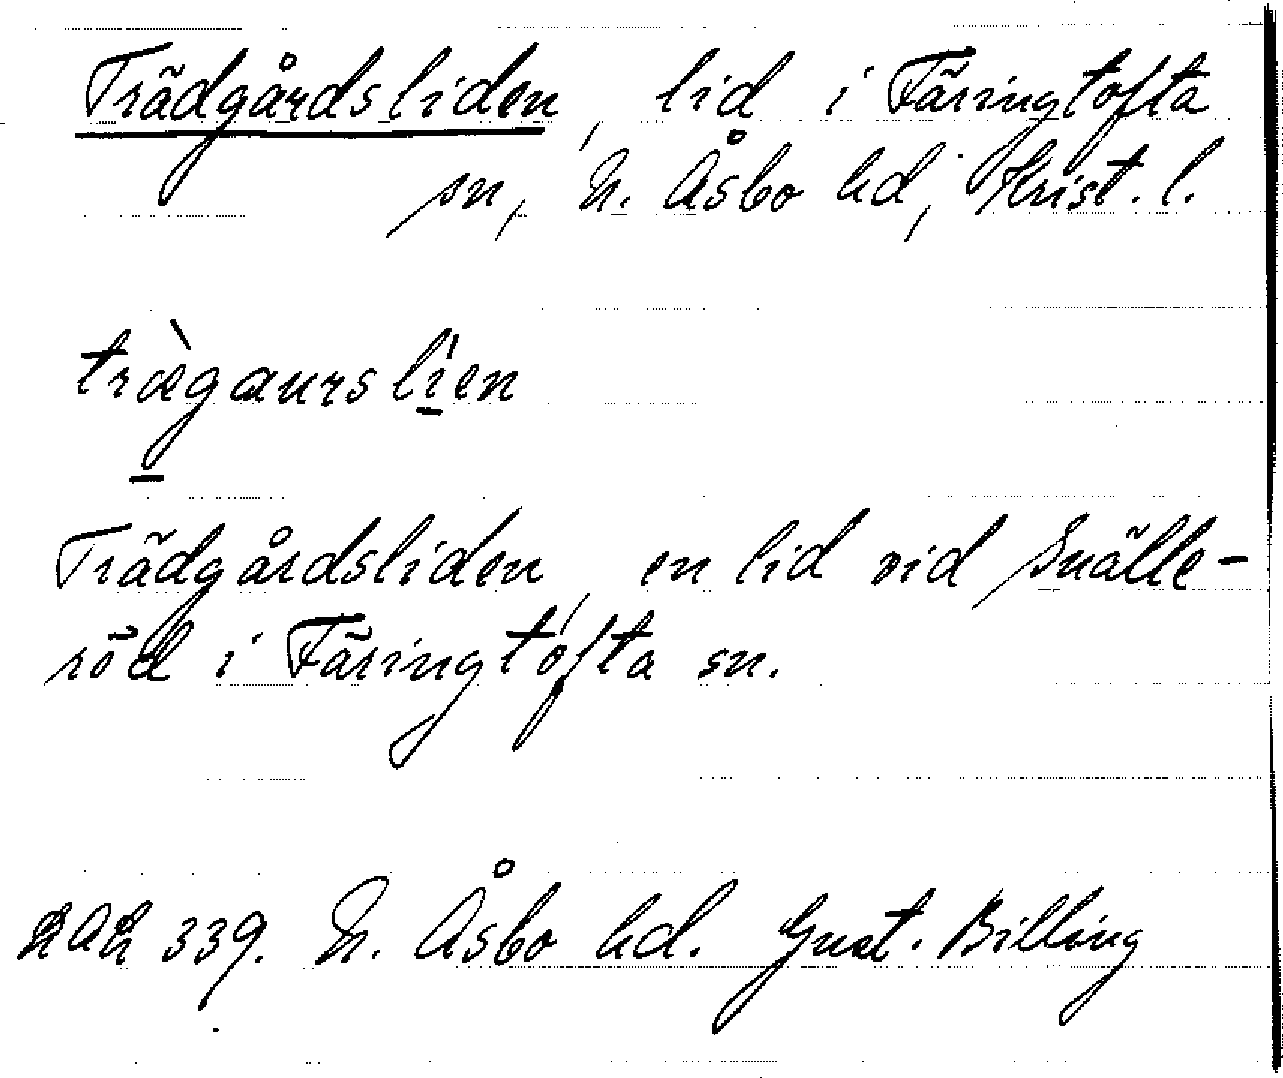 Trädgårdsliden, lid i Färingtofta
sn, N. Åsbo hd, Krist. l.
træ̀gaurslíen
Trädgårdsliden, en lid vid Snälle-
röd i Färingtofta sn.
339. N. Åsbo hd. Gust. Billing